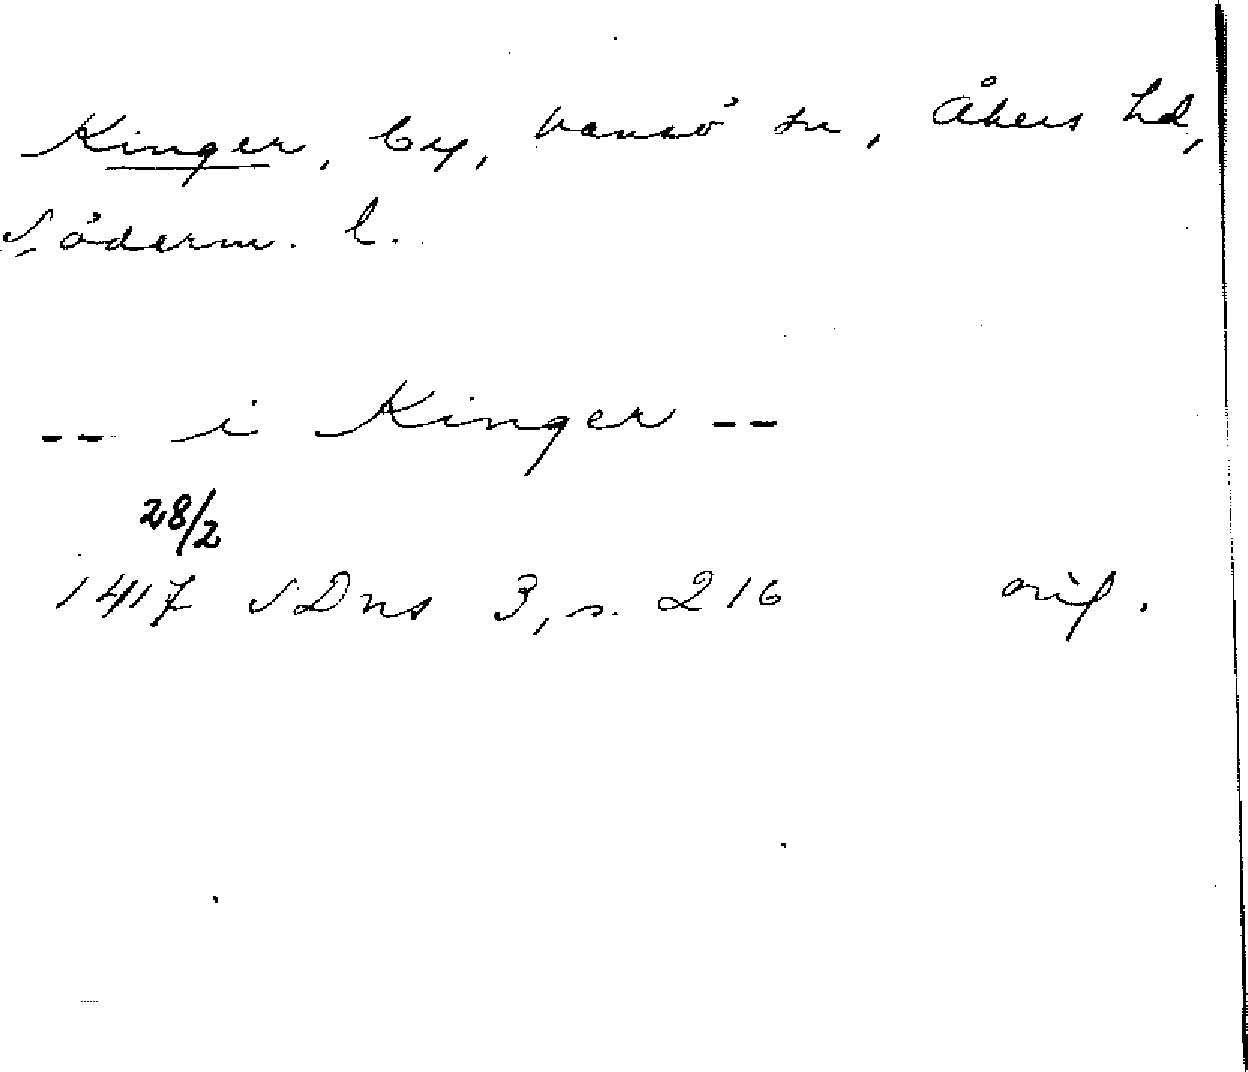 Kinger, by, Vansö sn, Åkers hd,
Söderm. l.
-- i Kinger --
28/2
1417 SDns 3, s. 216 orig.